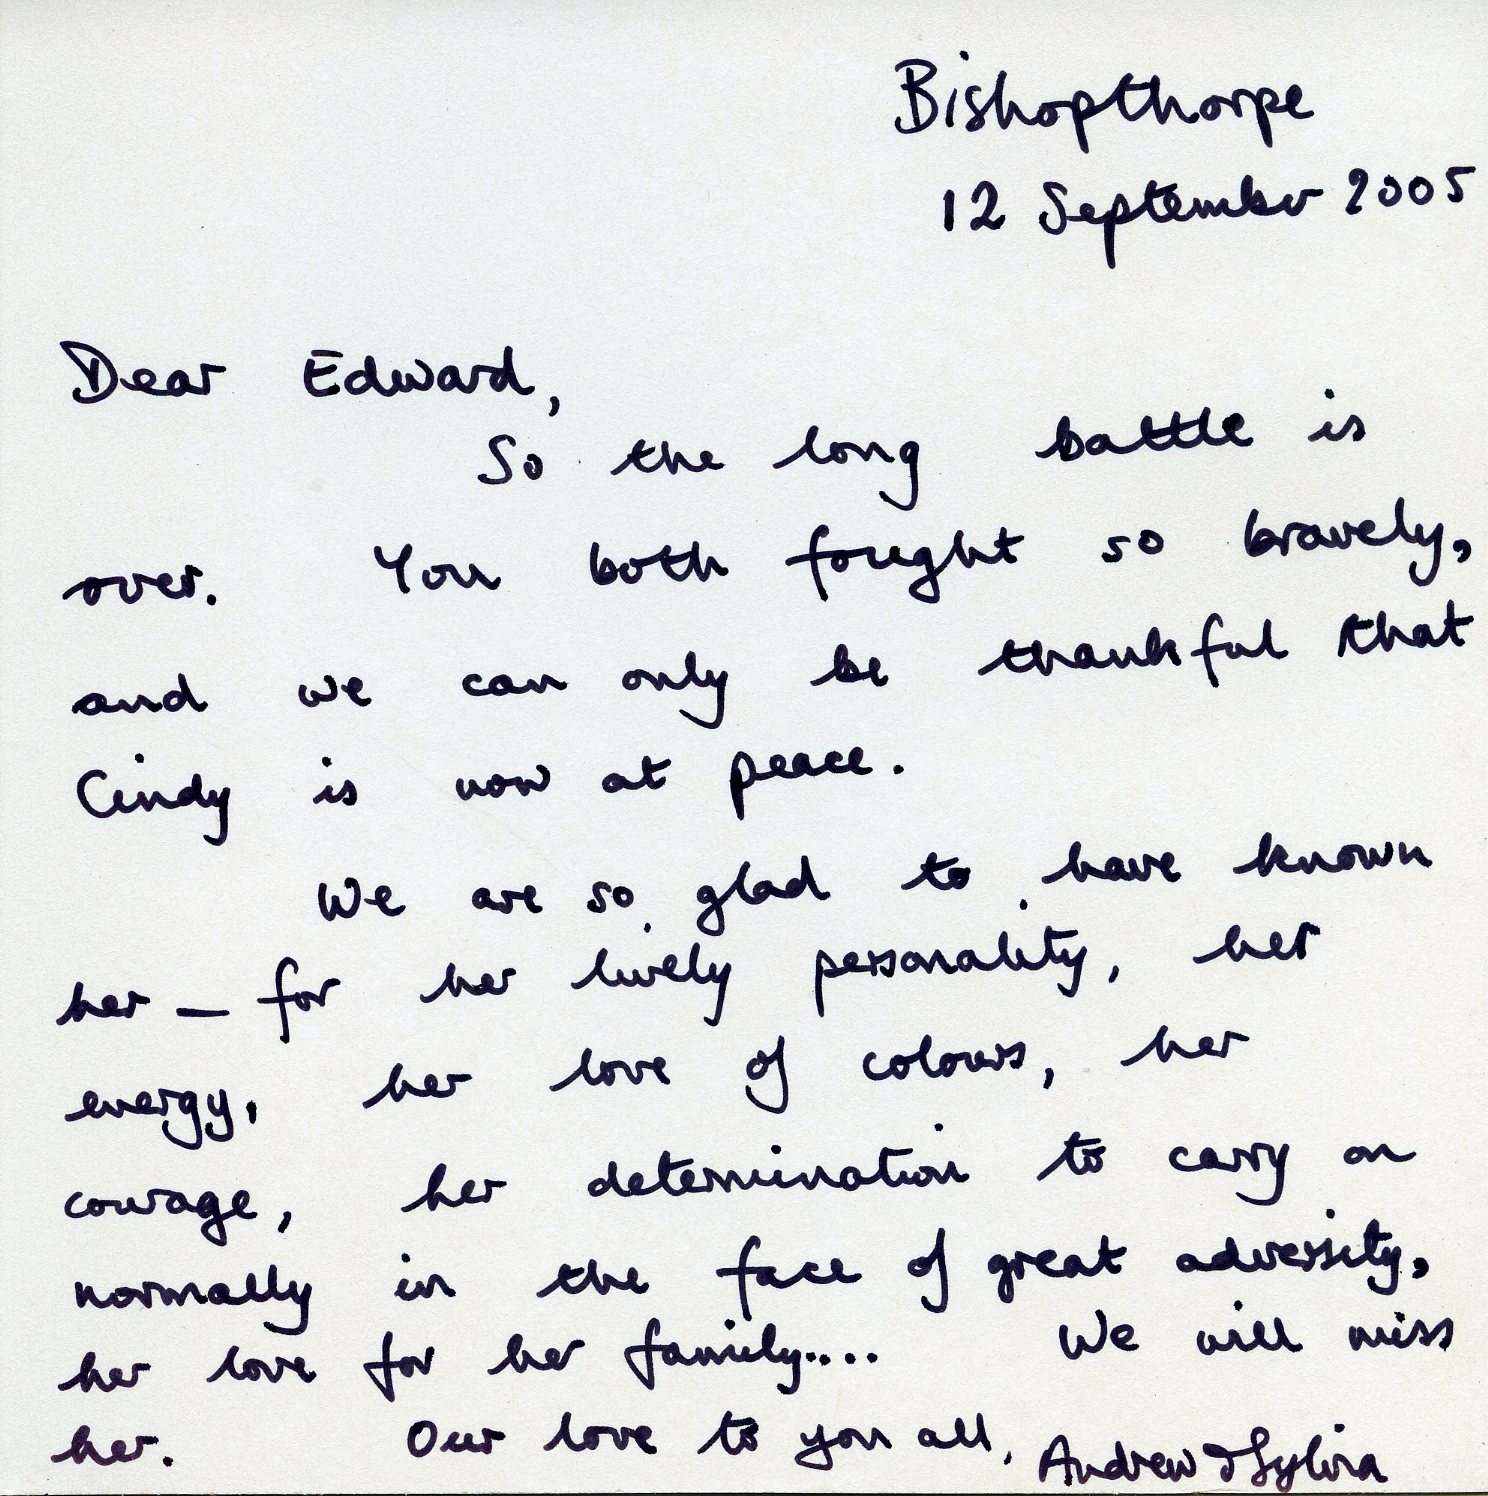 Bishopthorpe
12 September 2005
Dear Edward,
So the long battle is
over. You both fought so bravely,
and we can only be thankful that
Cindy is now at peace.
We are so glad to have known
her — for her lively personality, her
energy, her love of colours, her
courage, her determination to carry on
normally in the face of great adversity,
her love for her family.... We will miss
her. Our love to you all, Andrew & Sylvia